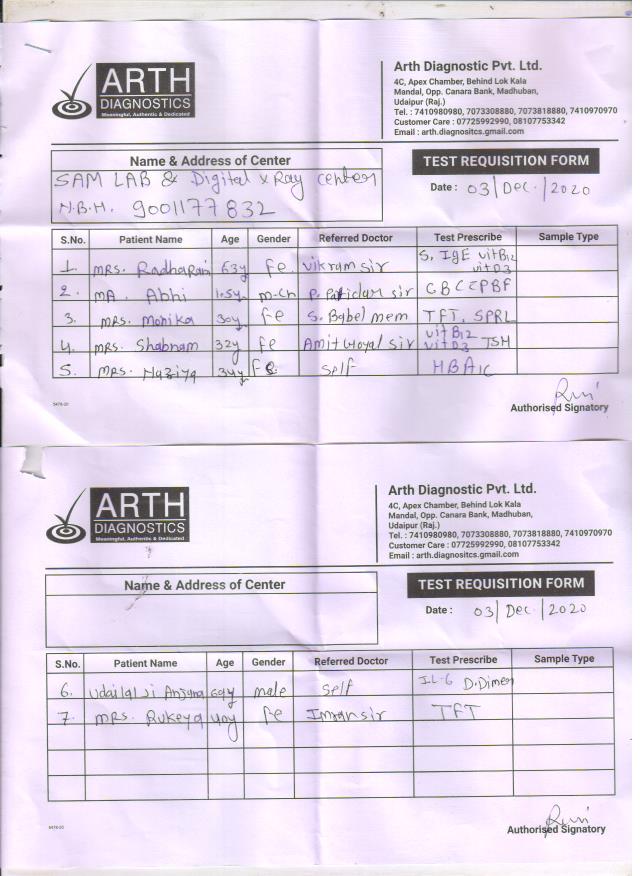 ARTH
DIAGNOSTICS
Meaningful, Authentic & Dedicated
Arth Diagnostic Pvt. Ltd.
4C, Apex Chamber, Behind Lok Kala
Mandal, Opp. Canara Bank, Madhuban,
Udaipur (Raj.)
Tel. : 7410980980, 7073308880, 7073818880, 7410970970
Customer Care : 07725992990, 08107753342
Email : arth.diagnositcs.gmail.com
Name & Address of Center
TEST REQUISITION FORM
SAM LAB & Digital x Ray center
N.B.H. 9001177832
Date : 03/Dec./2020
S.No. Patient Name Age Gender Referred Doctor Test Prescribe Sample Type
1. MRS. Fe vikram sir S. IgE vitB12 vitD3
2. MA. Abhi 1.5y m.ch P. Patidar sir CBC & PBF
3. MRS. Monika 30y Fe S. Babel mem TFT, SPRL
4. MRS. Shabnam 32y Fe Amit Goyal sir vitB12 vitD3 TSH
5. MRS. Naziya 34y Fe Self HBA1C
Authorised Signatory
5476-20
ARTH
DIAGNOSTICS
Meaningful, Authentic & Dedicated
Arth Diagnostic Pvt. Ltd.
4C, Apex Chamber, Behind Lok Kala
Mandal, Opp. Canara Bank, Madhuban,
Udaipur (Raj.)
Tel. : 7410980980, 7073308880, 7073818880, 7410970970
Customer Care : 07725992990, 08107753342
Email : arth.diagnositcs.gmail.com
Name & Address of Center
TEST REQUISITION FORM
Date : 03/Dec./2020
S.No. Patient Name Age Gender Referred Doctor Test Prescribe Sample Type
6. Udailal Ji Anjana male Self IL-6 D.Dimer
7. MRS. Rukeya Fe Imran sir TFT
Authorised Signatory
5476-20